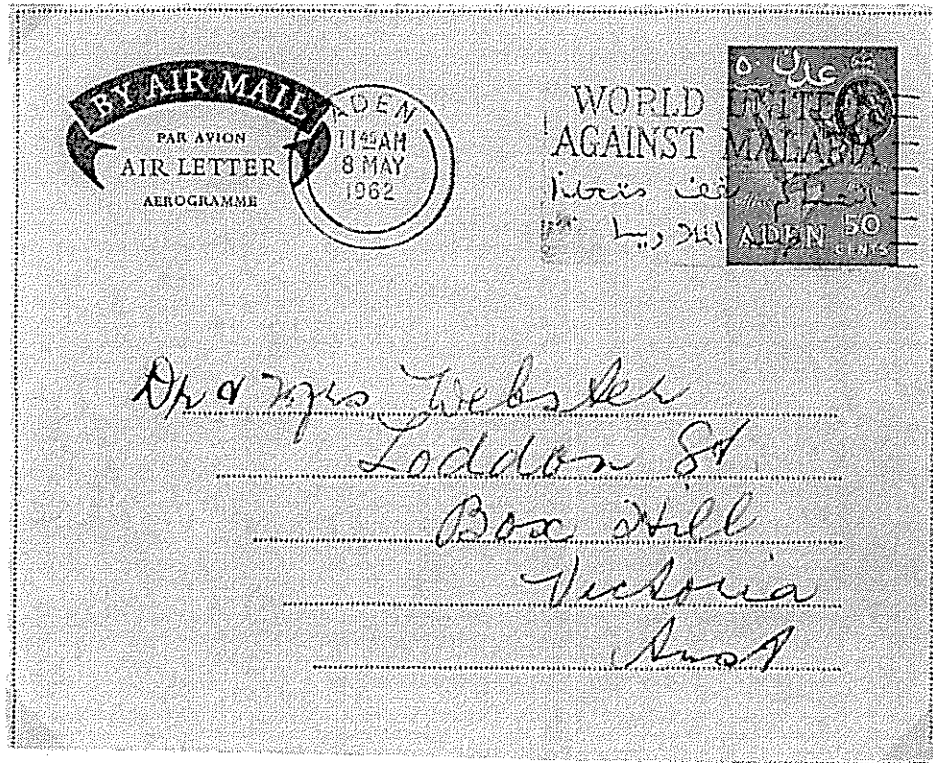 BY AIR MAIL
PAR AVION
AIR LETTER
AEROGRAMME
ADEN
11 45 AM
8 MAY
1962
WORLD UNITED
AGAINST MALARIA
عدن ٥٠
ADEN 50
CENTS
Dr & Mrs Webster
Loddon St
Box Hill
Victoria
Aust